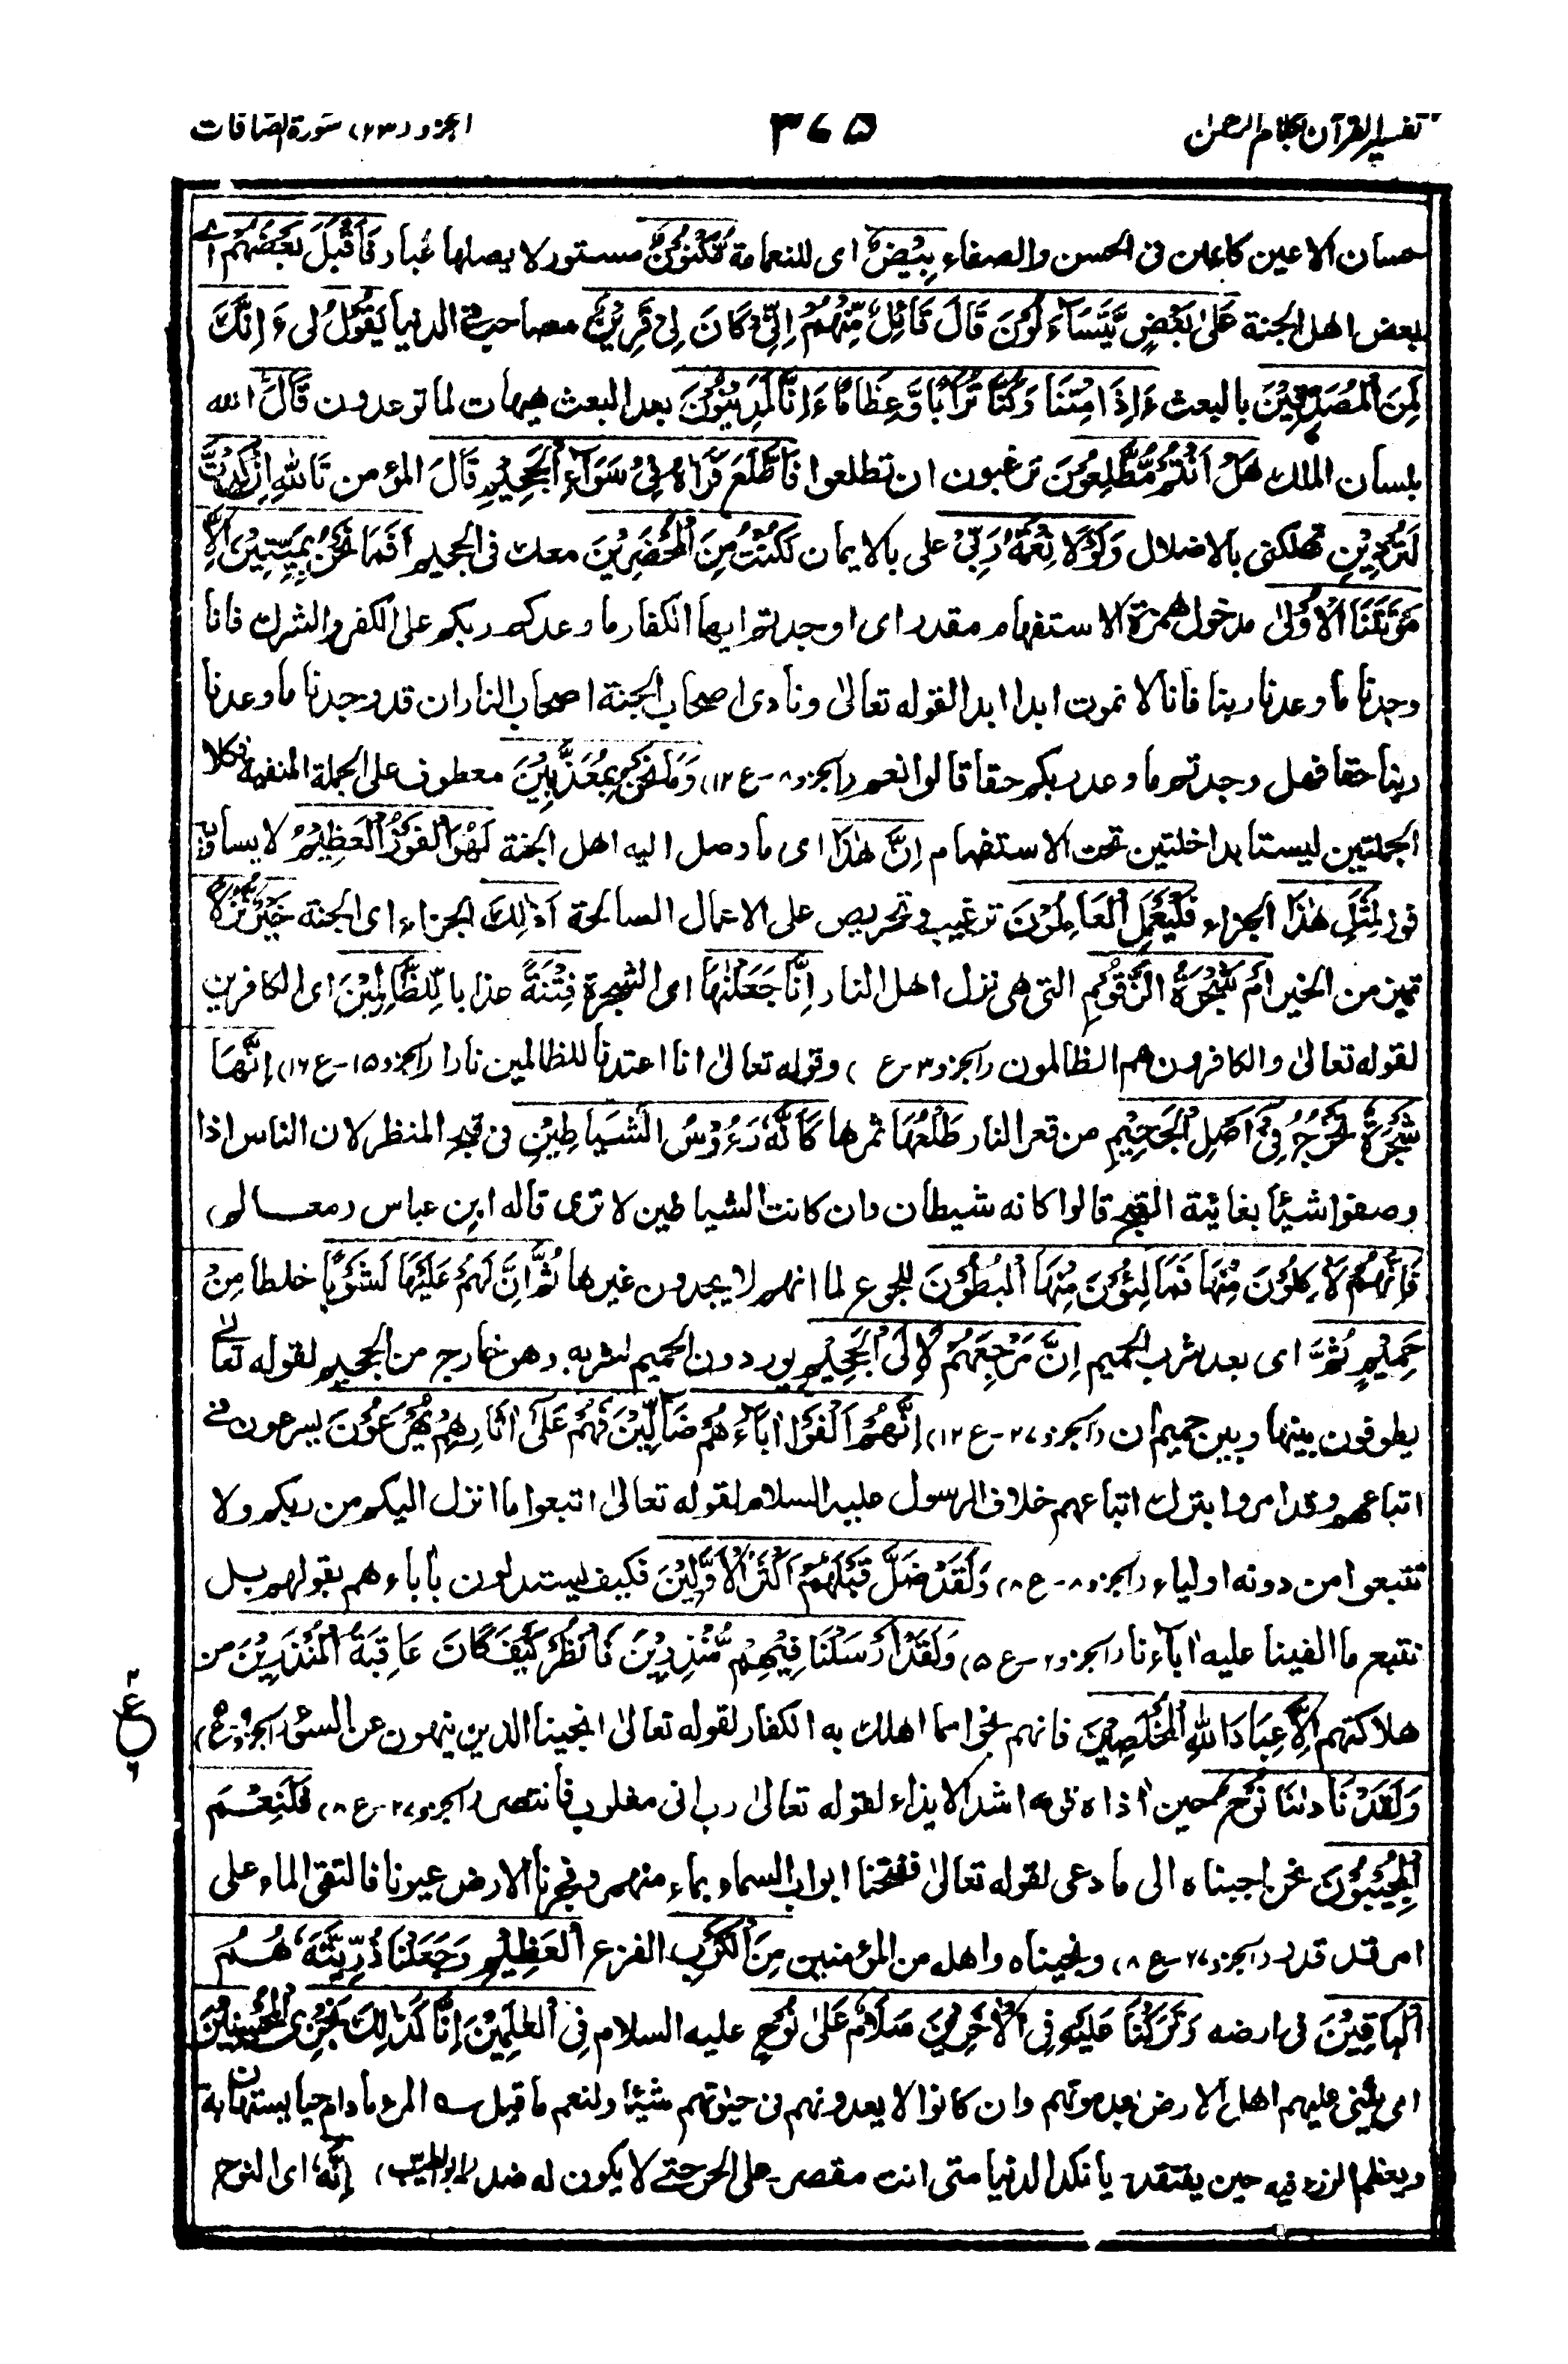 تفسير القرآن بكلام الرحمٰن
٣٦٥
الجزو (٢٣) سورة الصافات
حسان الاعين كاعلن فى الحسن والصفاء بَيْضٌ اى للنعامة مَّكْنُوْنٌ مستور لا يصلها غبار فَاَقْبَلَ بَعْضُهُمْ اے
بعض اهل الجنة عَلٰى بَعْضٍ يَّتَسَآءَلُوْنَ قَالَ قَآئِلٌ مِّنْهُمْ اِنِّيْ كَانَ لِيْ قَرِيْنٌ مصاحب فى الدنيا يَقُوْلُ لى ءَاِنَّكَ
لَمِنَ الْمُصَدِّقِيْنَ بالبعث ءَاِذَا مِتْنَا وَكُنَّا تُرَابًا وَّعِظَامًا ءَاِنَّا لَمَدِيْنُوْنَ بعد البعث هيهات لما توعدون قَالَ الله
بلسان الملك هَلْ اَنْتُمْ مُّطَّلِعُوْنَ ترغبون ان تطلعوا فَاطَّلَعَ فَرَاٰهُ فِيْ سَوَآءِ الْجَحِيْمِ قَالَ المؤمن تَاللّٰهِ اِنْ كِدْتَّ
لَتُرْدِيْنِ تهلكنى بالاضلال وَلَوْلَا نِعْمَةُ رَبِّيْ على بالايمان لَكُنْتُ مِنَ الْمُحْضَرِيْنَ معك فى الجحيم اَفَمَا نَحْنُ بِمَيِّتِيْنَ اِلَّا
مَوْتَتَنَا الْاُوْلٰى مدخول همزة الاستفهام مقدر اى اوجدتم ايها الكفار ما وعدكم ربكم على الكفر والشرك فانا
وجدنا ما وعدنا ربنا فانا لا نموت ابدا ابدا لقوله تعالىٰ ونادى اصحاب الجنة اصحاب النار ان قد وجدنا ما وعدنا
ربنا حقا فهل وجدتم ما وعد ربكم حقا قالوا نعم (الجزو ٨ - ع ١٢) وَمَا نَحْنُ بِمُعَذَّبِيْنَ معطوف على الجملة المنفية فكلا
الجملتين ليستا بداخلتين تحت الاستفهام اِنَّ هٰذَا اى ما وصل اليه اهل الجنة لَهُوَ الْفَوْزُ الْعَظِيْمُ لا يساويه
فوز لِمِثْلِ هٰذَا الجزاء فَلْيَعْمَلِ الْعَامِلُوْنَ ترغيب وتحريص على الاعمال الصالحة اَذٰلِكَ الجزاء اى الجنة خَيْرٌ نُّزُلًا
تميز من الخير اَمْ شَجَرَةُ الزَّقُّوْمِ التى هى نزل اهل النار اِنَّا جَعَلْنٰهَا اى الشجرة فِتْنَةً عذابا لِّلظّٰلِمِيْنَ اى الكافرين
لقوله تعالىٰ والكافرون هم الظالمون (الجزو ٣ - ع ) وقوله تعالىٰ انا اعتدنا للظالمين نارا (الجزو ١٥ - ع ١٦) اِنَّهَا
شَجَرَةٌ تَخْرُجُ فِيْ اَصْلِ الْجَحِيْمِ من قعر النار طَلْعُهَا ثمرها كَاَنَّهٗ رُءُوْسُ الشَّيَاطِيْنِ فى قبح المنظر لان الناس اذا
وصفوا شيئا بغائية القبح قالوا كانه شيطان وان كانت الشياطين لا ترى قاله ابن عباس (معالم)
فَاِنَّهُمْ لَاٰكِلُوْنَ مِنْهَا فَمَالِئُوْنَ مِنْهَا الْبُطُوْنَ للجوع لما انهم لا يجدون غيرها ثُمَّ اِنَّ لَهُمْ عَلَيْهَا لَشَوْبًا خلطا مِنْ
حَمِيْمٍ ثُمَّ اى بعد شرب الحميم اِنَّ مَرْجِعَهُمْ لَاِلَى الْجَحِيْمِ يوردون الحميم لشربه وهو خارج من الجحيم لقوله تعالٰى
يطوفون بينها وبين حميم ان (الجزو ٢٧ - ع ١٢) اِنَّهُمْ اَلْفَوْا اٰبَآءَهُمْ ضَآلِّيْنَ فَهُمْ عَلٰى اٰثَارِهِمْ يُهْرَعُوْنَ يسرعون فى
اتباعهم وقد امروا بترك اتباعهم خلاف الرسول عليه السلام لقوله تعالىٰ اتبعوا ما انزل اليكم من ربكم ولا
تتبعوا من دونه اولياء (الجزو ٨ - ع ٨) وَلَقَدْ ضَلَّ قَبْلَهُمْ اَكْثَرُ الْاَوَّلِيْنَ فكيف يستدلون بآباءهم بقولهم بل
نتبع ما الفينا عليه اٰباءنا (الجزو ٢ - ع ٥) وَلَقَدْ اَرْسَلْنَا فِيْهِمْ مُّنْذِرِيْنَ فَانْظُرْ كَيْفَ كَانَ عَاقِبَةُ الْمُنْذَرِيْنَ من
هلاكتهم اِلَّا عِبَادَ اللّٰهِ الْمُخْلَصِيْنَ فانهم نجوا مما اهلك به الكفار لقوله تعالىٰ انجينا الذين ينهون عن السوء
ع
٦
وَلَقَدْ نَادٰىنَا نُوْحٌ حين اذاه قومه اشد الايذاء لقوله تعالىٰ رب انى مغلوب فانتصر (الجزو ٢٧ - ع ٨) فَلَنِعْمَ
الْمُجِيْبُوْنَ نحن اجبناه الى ما دعى لقوله تعالىٰ ففتحنا ابواب السماء بماء منهمر وفجرنا الارض عيونا فالتقى الماء على
امر قد قدر (الجزو ٢٧ - ع ٨) ونجيناه واهله من المؤمنين مِنَ الْكَرْبِ الفزع الْعَظِيْمِ وَجَعَلْنَا ذُرِّيَّتَهٗ هُمُ
الْبَاقِيْنَ فى ارضه وَتَرَكْنَا عَلَيْهِ فِي الْاٰخِرِيْنَ سَلَامٌ عَلٰى نُوْحٍ عليه السلام فِي الْعٰلَمِيْنَ اِنَّا كَذٰلِكَ نَجْزِى الْمُحْسِنِيْنَ
اى يثنى عليهم اهل الارض بعد موتهم وان كانوا لا يعدونهم فى حيٰوتهم شيئا ولنعم ما قيل ؎ المرء ما دام حيا يستهان به
ويعظم الرزء فيه حين يفتقد - يا نكد الدنيا متى انت مقصر - على الحر حتے لا يكون له ضد (ابو الطيب) اِنَّهٗ اى النوح